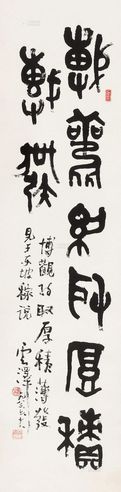 博觀約取厚積
薄發
博觀約取厚積薄發
見于東坡稼說